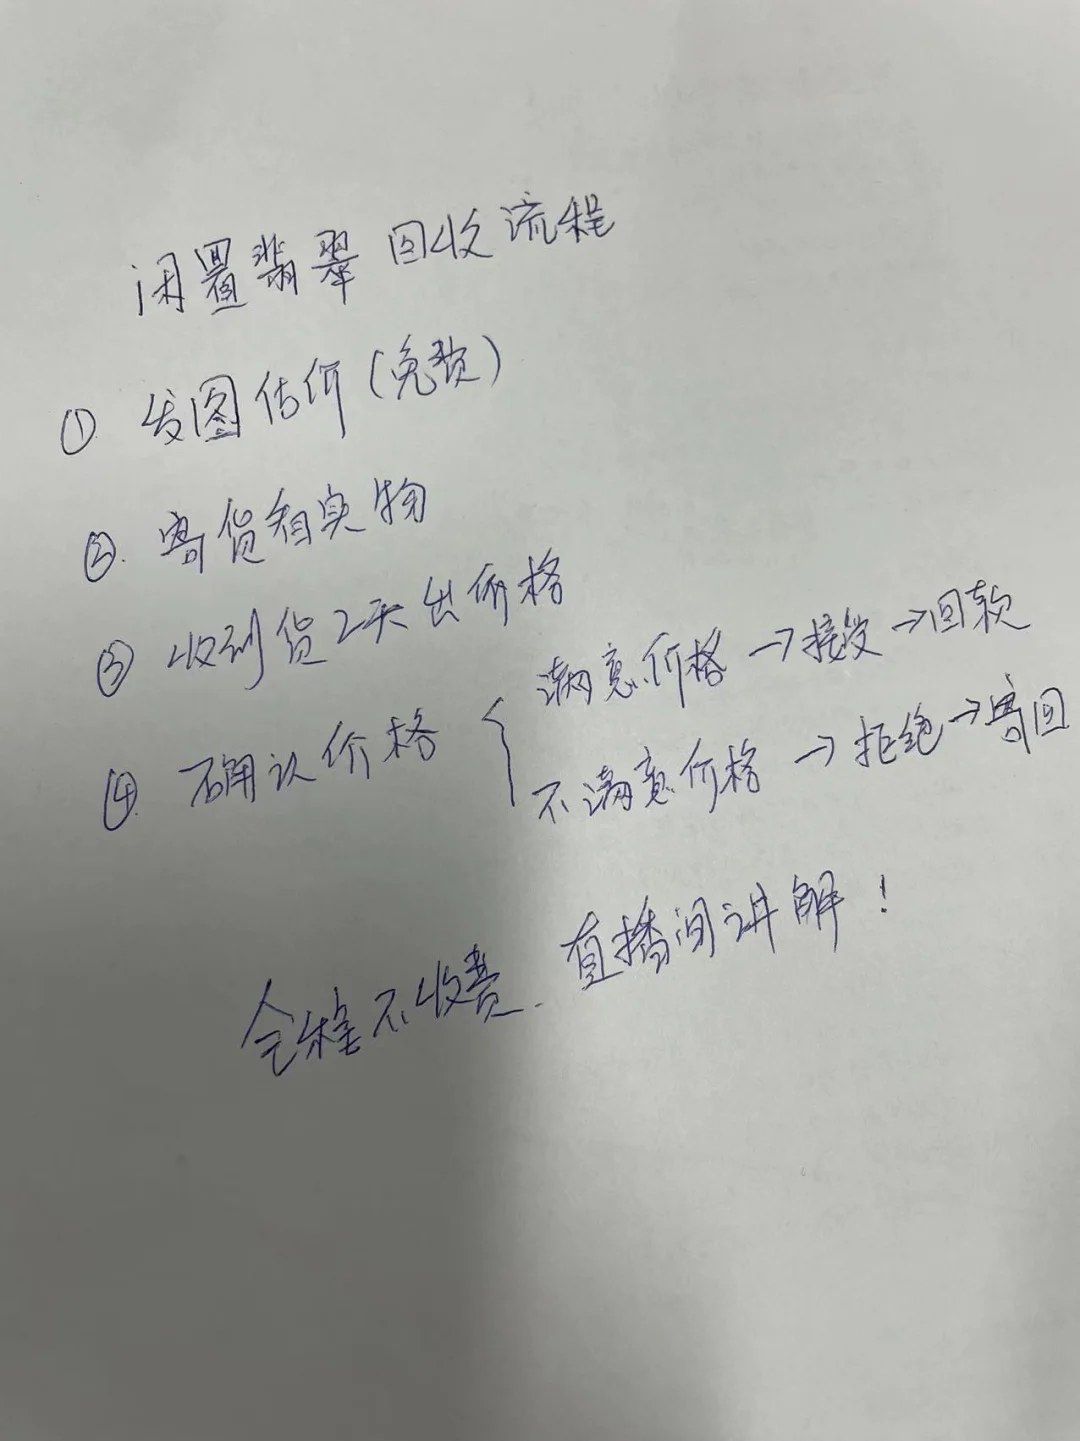 闲置翡翠回收流程
① 发图估价(免费)
②. 寄货看实物
③ 收到货2天出价格
④ 确认价格
满意价格→接受→回款
不满意价格→拒绝→寄回
全程不收费.直播间讲解!